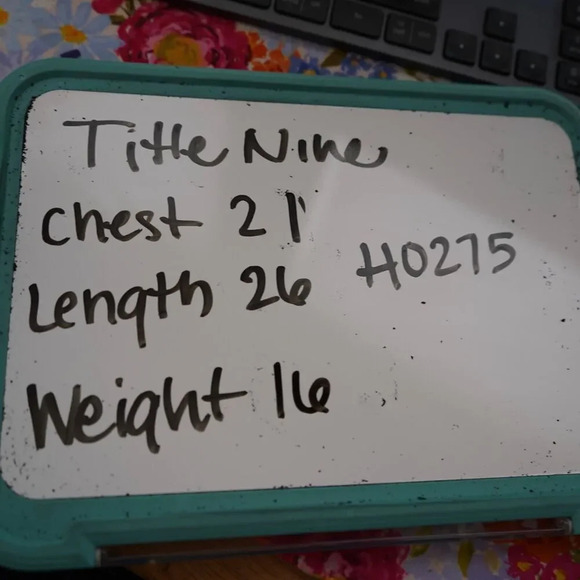 Title Nine
Chest 21
Length 26
H0275
Weight 16